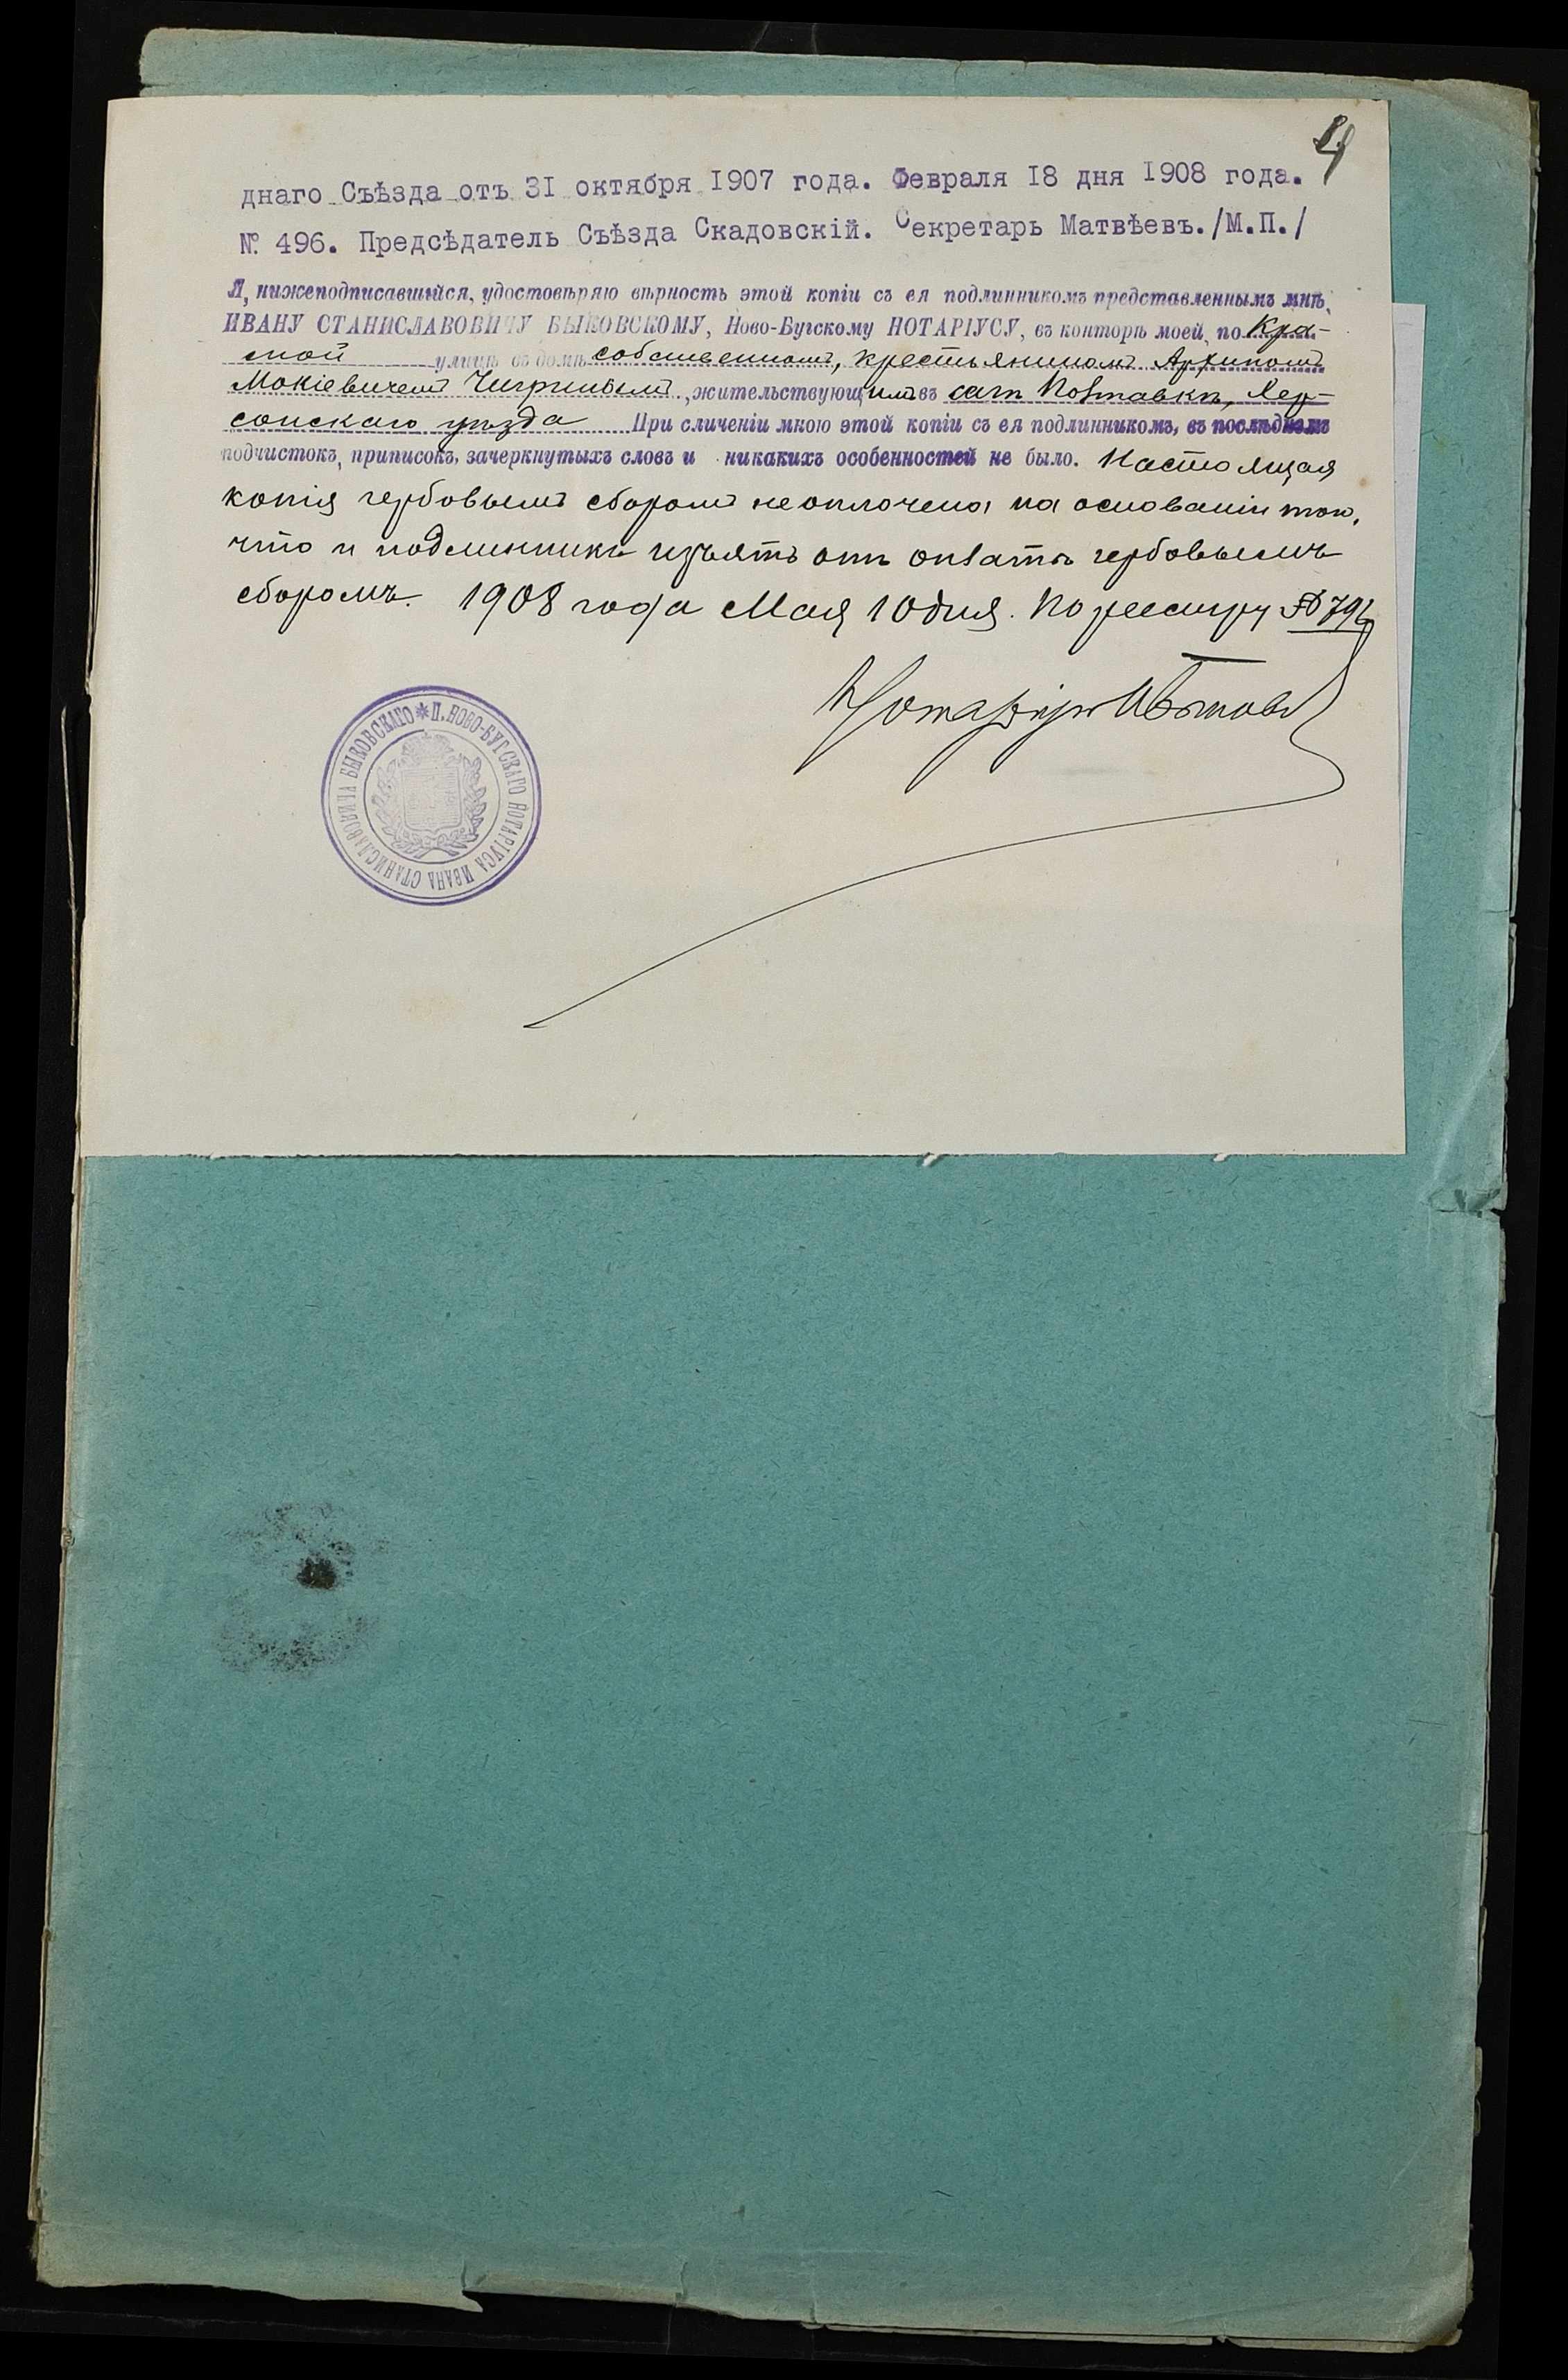 84
днаго Съѣзда отъ 31 октября 1907 года. Февраля 18 дня 1908 года.
№ 496. Предсѣдатель Съѣзда Скадовскій. Секретарь Матвѣевъ./М.П./
Я, нижеподписавшійся, удостовѣряю вѣрность этой копіи съ ея подлинникомъ представленнымъ мнѣ,
ИВАНУ СТАНИСЛАВОВИЧУ БЫКОВСКОМУ, Ново-Бугскому НОТАРІУСУ, въ конторѣ моей, по Кра-
сной улицѣ въ домѣ собственномъ, крестьяниномъ Архипомъ
Мокіевичемъ жительствующимъ въ селѣ Полтавкѣ, Хер-
сонскаго уѣзда При сличеніи мною этой копіи съ ея подлинникомъ, въ послѣднемъ
подчистокъ, приписокъ, зачеркнутыхъ словъ и никакихъ особенностей не было. Настоящая
копія гербовымъ сборомъ неоплочена на основаніи того,
что и подлинникъ изъятъ отъ оплаты гербовымъ
сборомъ. 1908 года Мая 10 дня. По реестру № 796
Нотаріусъ
* П. НОВО-БУГСКАГО НОТАРІУСА ИВАНА СТАНИСЛАВОВИЧА БЫКОВСКАГО